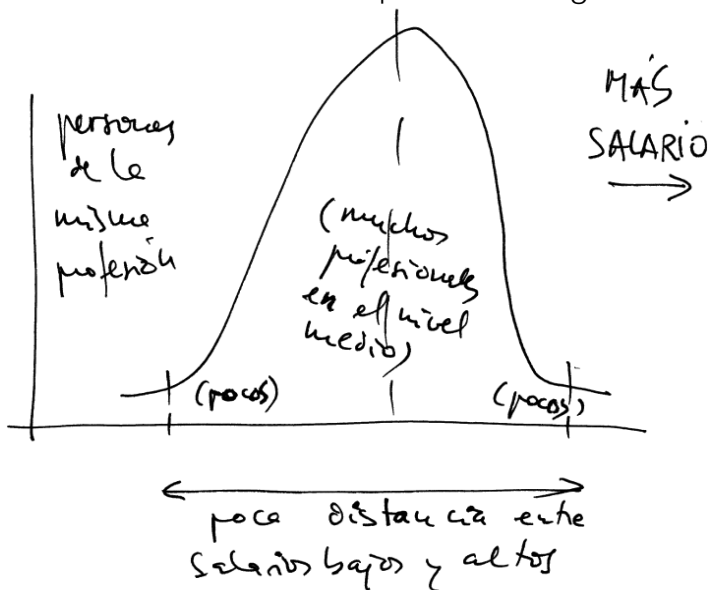 personas
de la
misma
profesión
MÁS
SALARIO
(muchos
profesionales
en el nivel
medio)
(pocos)
(pocos)
poca distancia entre
salarios bajos y altos